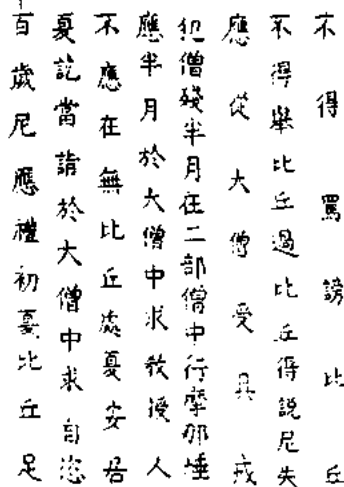 不得罵謗比丘
不得舉比丘過比丘得說尼失
應從大僧受具戒
犯僧殘半月在二部僧中行摩那埵
應半月於大僧中求教授人
不應在無比丘處夏安居
夏訖當請於大僧中求自恣
百歲尼應禮初夏比丘足